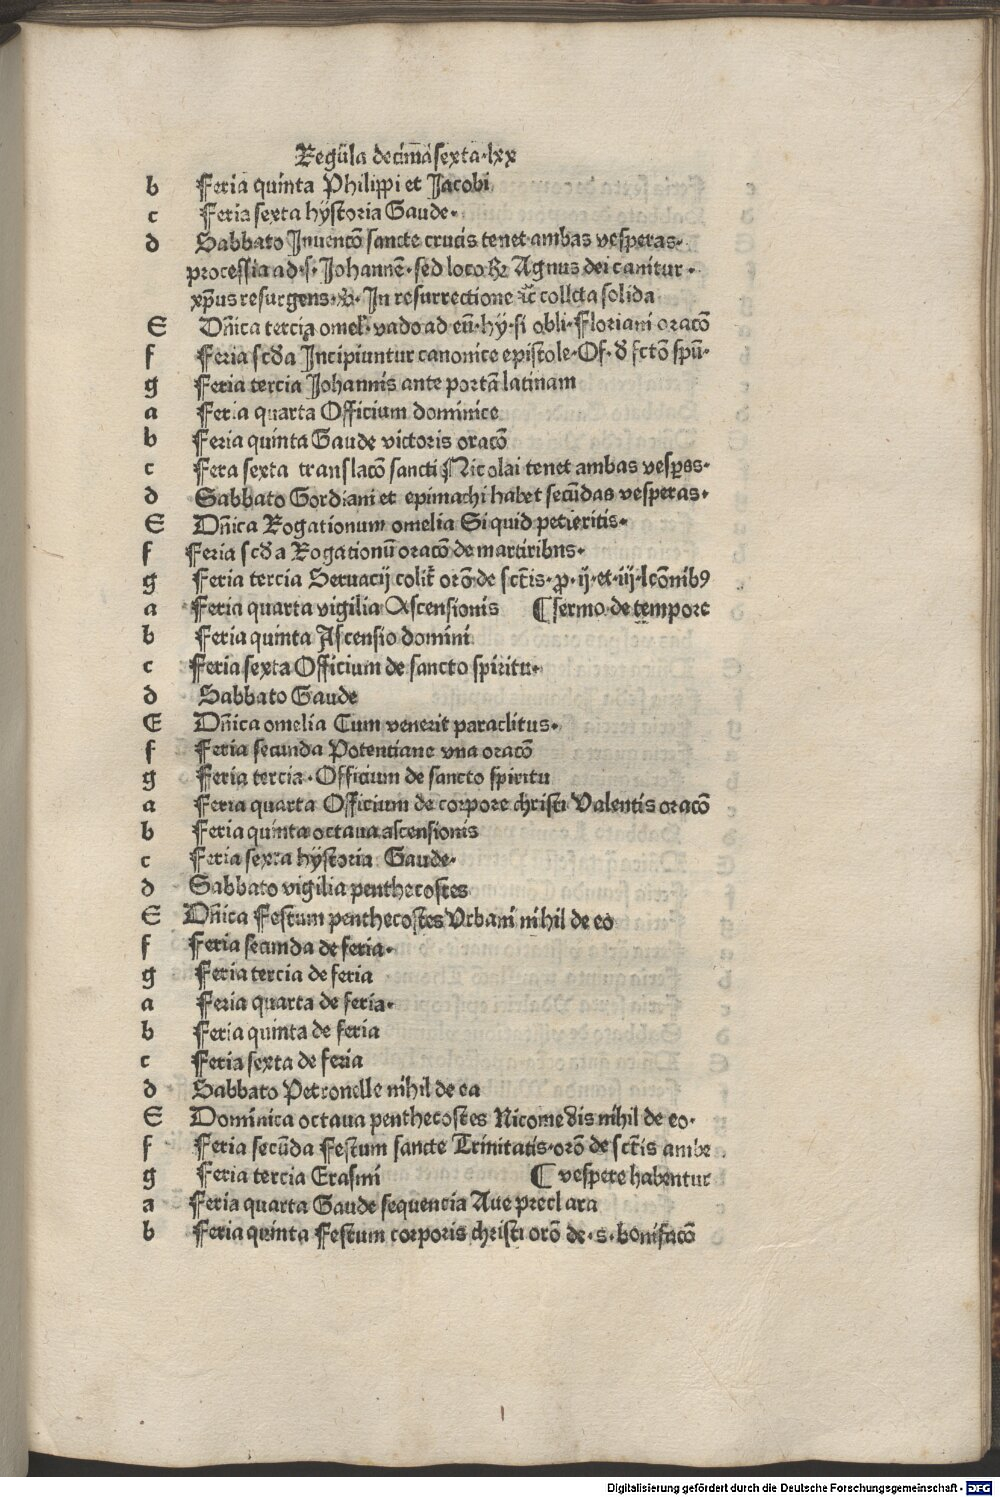 Regula decimasexta·lxx
b Feria quinta Philippi et Jacobi
c Feria sexta hystoria Gaude·
d Sabbato Inuencõ sancte crucis tenet ambas vesperas·
processia ad·s·Johannẽ·sed loco Agnus dei canitur·
xp̃us resurgens·In resurrectione collcta solida
E Dñica tercia omel·vado ad eũ·hy·si obli·Floriani oracõ
f Feria scďa Incipiuntur canonice epistole·Of·ď sctõ spũ·
g Feria tercia Johannis ante portã latinam
a Feria quarta Officium dominice
b Feria quinta Gaude victoris oracõ
c Fera sexta translacõ sancti Nicolai tenet ambas vesp̃as·
d Sabbato Gordiani et epimachi habet secũdas vesperas·
E Dñica Rogationum omelia Si quid petieritis·
f Feria scďa Rogationũ oracõ de martiribns·
g Feria tercia Seruacij colit̃ orõ de sct̃is·p·ij·et·iij·lcõnib9
a Feria quarta vigilia Ascensionis ¶ sermo de tempore
b Feria quinta Ascensio domini
c Feria sexta Officium de sancto spiritu·
d Sabbato Gaude
E Dñica omelia Cum venerit paraclitus·
f Feria secunda Potentiane vna oracõ
g Feria tercia·Officium de sancto spiritu
a Feria quarta Officium de corpore christi Valentis oracõ
b Feria quinta octaua ascensionis
c Feria sexta hystoria Gaude·
d Sabbato vigilia penthecostes
E Dñica Festum penthecostes Vrbani nihil de eo
f Feria secunda de feria·
g Feria tercia de feria
a Feria quarta de feria·
b Feria quinta de feria
c Feria sexta de feria
d Sabbato Petronelle nihil de ea
E Dominica octaua penthecostes Nicomedis nihil de eo·
f Feria secũda Festum sancte Trinitatis·orõ de sct̃is ambe
g Feria tercia Erasmi ¶ vespere habentur
a Feria quarta Gaude sequencia Aue preclara
b Feria quinta Festum corporis christi orõ de·s·bonifacõ
Digitalisierung gefördert durch die Deutsche Forschungsgemeinschaft - DFG